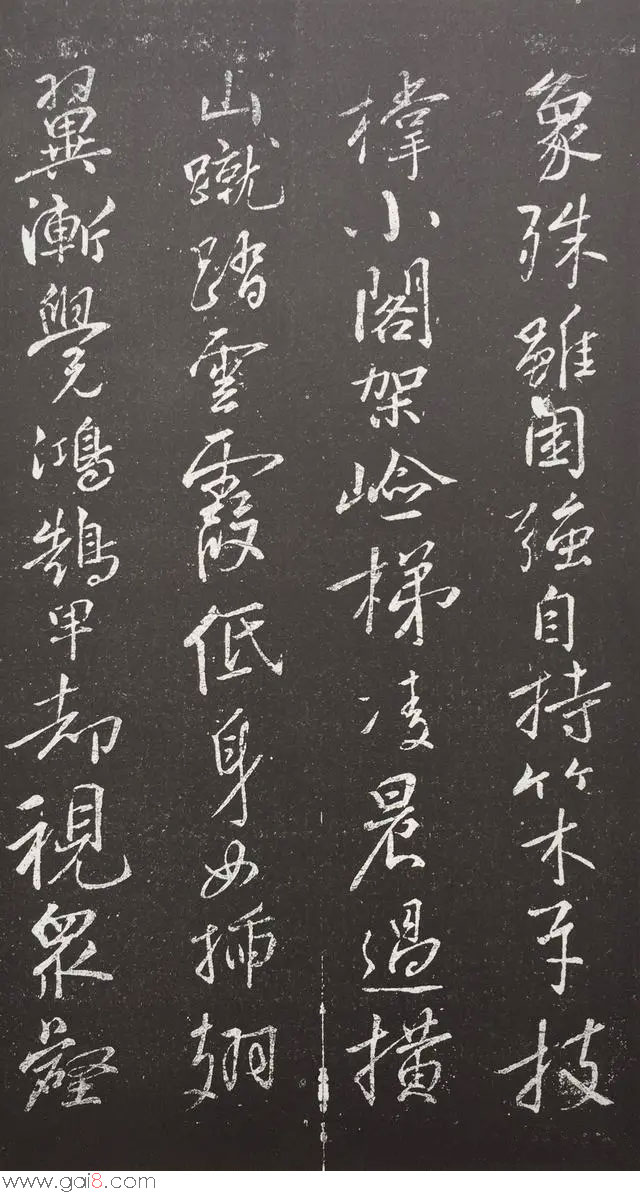 象殊雖困強自持竹木牙枝
橕小閣架嶮梯凌晨過橫
山蹴踏雲霞低身如插翅
翼漸覺鴻鵠卑却視衆壑
www.gai8.com